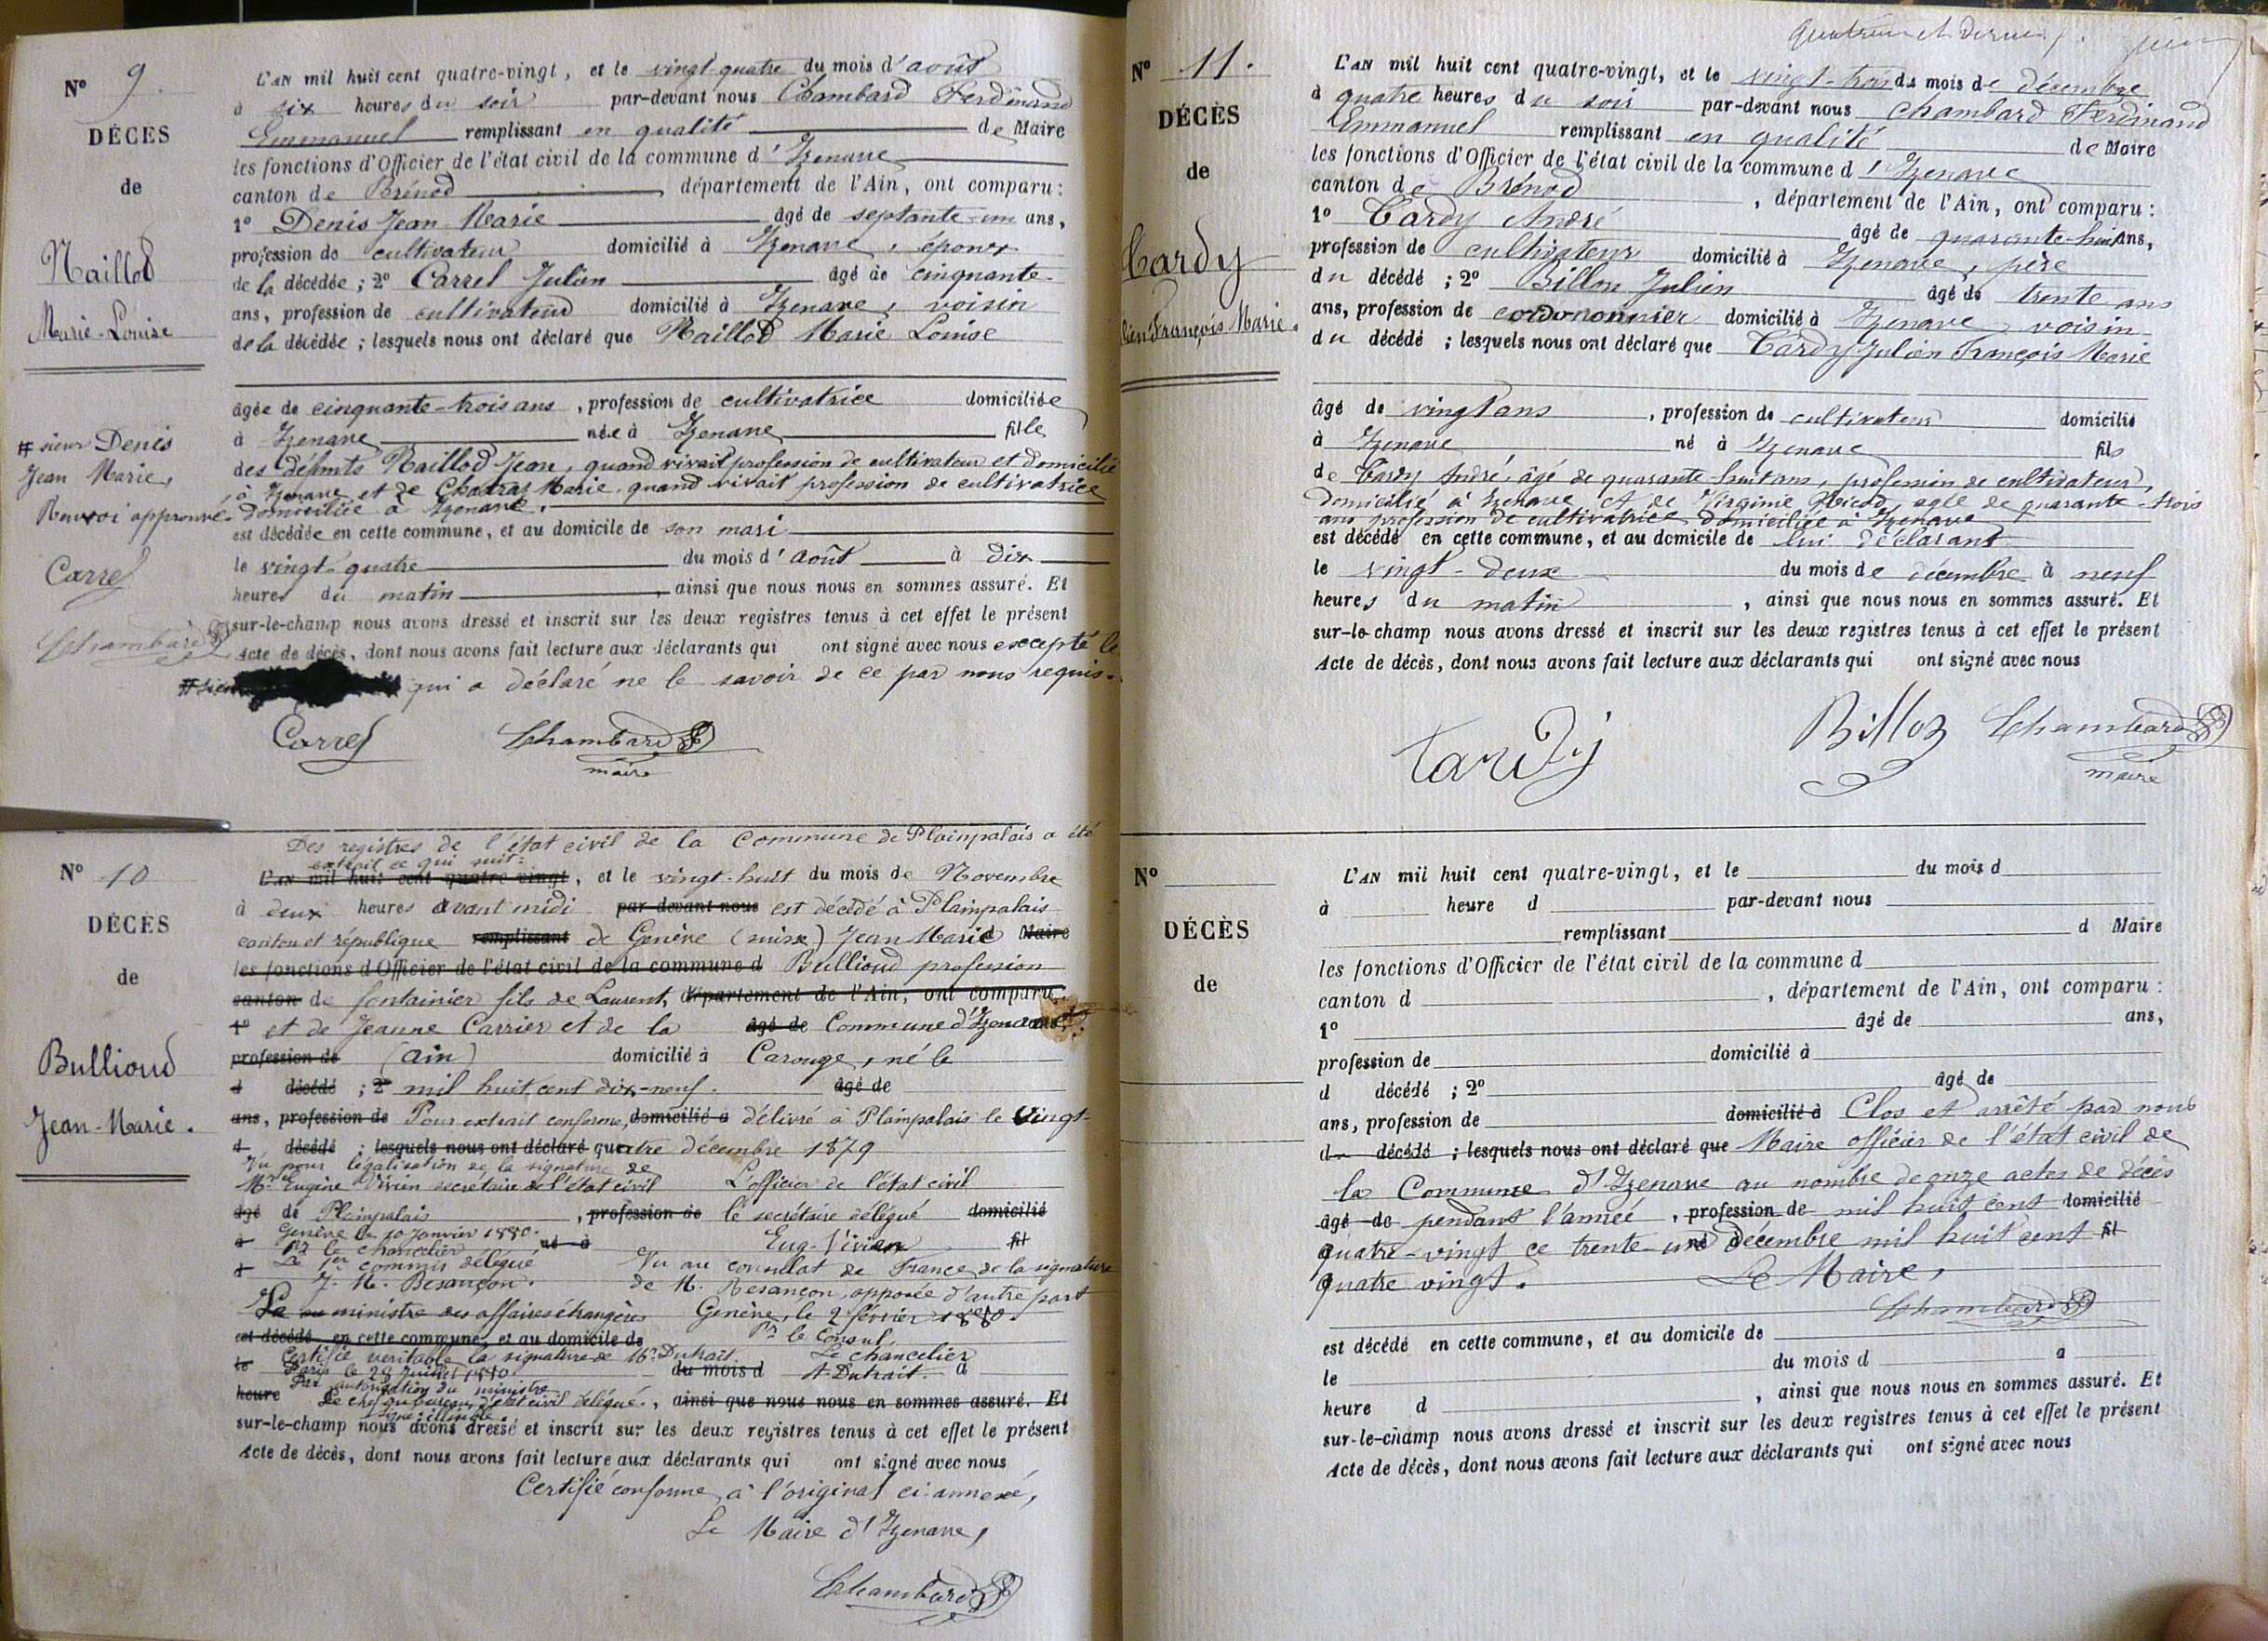 N° 9.
DÉCÈS
de
Maillod
Marie-Louise
# sieur Denis
Jean Marie,
Renvoi approuvé.
Carrel
Chambard
L'AN mil huit cent quatre-vingt, et le vingt-quatre du mois d'août
à six heures du soir par-devant nous Chambard Ferdinand
Emmanuel remplissant en qualité de Maire
les fonctions d'Officier de l'état civil de la commune d'Izenave
canton de Brénod, département de l'Ain, ont comparu :
1° Denis Jean Marie âgé de septante-un ans,
profession de cultivateur domicilié à Izenave, époux
de la décédée ; 2° Carrel Julien âgé de cinquante-
ans, profession de cultivateur domicilié à Izenave, voisin
de la décédée ; lesquels nous ont déclaré que Maillod Marie Louise
âgée de cinquante-trois ans, profession de cultivatrice domiciliée
à Izenave née à Izenave fille
des défunts Maillod Jean, quand vivait profession de cultivateur et domicilié
à Izenave et de Chatras Marie, quand vivait profession de cultivatrice
domiciliée à Izenave.
est décédée en cette commune, et au domicile de son mari
le vingt-quatre du mois d'août à dix
heures du matin, ainsi que nous nous en sommes assuré. Et
sur-le-champ nous avons dressé et inscrit sur les deux registres tenus à cet effet le présent
Acte de décès, dont nous avons fait lecture aux déclarants qui ont signé avec nous excepté le
# qui a déclaré ne le savoir de ce par nous requis.
Carrel Chambard
maire
N° 10
DÉCÈS
de
Bullioud
Jean-Marie.
Des registres de l'état civil de la Commune de Plainpalais a été
extrait ce qui suit :
L'AN mil huit cent quatre-vingt, et le vingt-huit du mois de Novembre
à deux heures avant midi par-devant nous est décédé à Plainpalais
canton et république remplissant de Genève (suisse) Jean Marie d Maire
les fonctions d'Officier de l'état civil de la commune d Bullioud profession
canton de fontainier fils de Laurent, département de l'Ain, ont comparu :
1° et de Jeanne Carrier et de la âgé de Commune d'Izenave
profession de (Ain) domicilié à Carouge, né le
d décédé ; 2° mil huit cent dix-neuf. âgé de
ans, profession de Pour extrait conforme, domicilié à délivré à Plainpalais le vingt-
d décédé ; lesquels nous ont déclaré quatre décembre 1879
Vu pour légalisation de la signature de
Mr Eugène Vivien secrétaire de l'état civil L'officier de l'état civil
âgé de Plainpalais, profession de le secrétaire délégué domicilié
à Genève le 10 Janvier 1880. né à Eug. Vivien fil
Pr le chancelier
d Le 1er commis délégué Vu au consulat de France de la signature
J. M. Besançon. de M. Besançon, apposée d'autre part
Le ministre des affaires étrangères Genève, le 2 février 1880.
est décédé en cette commune, et au domicile de Pr le Consul,
Certifie véritable la signature de Mr Dutrait. Le chancelier
le Paris le 28 Juillet 1880. du mois d A. Dutrait. à
Par autorisation du ministre
heure Le chef du bureau d'état civil délégué, ainsi que nous nous en sommes assuré. Et
signé : illisible.
sur-le-champ nous avons dressé et inscrit sur les deux registres tenus à cet effet le présent
Acte de décès, dont nous avons fait lecture aux déclarants qui ont signé avec nous
Certifié conforme à l'original ci-annexé,
Le Maire d'Izenave,
Chambard
Quatrième et dernier
N° 11.
DÉCÈS
de
Tardy
lien François Marie.
L'AN mil huit cent quatre-vingt, et le vingt-trois du mois de décembre
à quatre heures du soir par-devant nous Chambard Ferdinand
Emmanuel remplissant en qualité de Maire
les fonctions d'Officier de l'état civil de la commune d'Izenave
canton de Brénod, département de l'Ain, ont comparu :
1° Tardy André âgé de quarante-huit ans,
profession de cultivateur domicilié à Izenave, père
du décédé ; 2° Billon Julien âgé de trente ans
ans, profession de cordonnier domicilié à Izenave, voisin
du décédé ; lesquels nous ont déclaré que Tardy Julien François Marie
âgé de vingt ans, profession de cultivateur domicilié
à Izenave né à Izenave fils
de Tardy André, âgé de quarante huit ans, profession de cultivateur,
domicilié à Izenave et de Virginie agée de quarante-trois
ans profession de cultivatrice domiciliée à Izenave
est décédé en cette commune, et au domicile de lui déclarant
le vingt-deux du mois de décembre à neuf
heures du matin, ainsi que nous nous en sommes assuré. Et
sur-le-champ nous avons dressé et inscrit sur les deux registres tenus à cet effet le présent
Acte de décès, dont nous avons fait lecture aux déclarants qui ont signé avec nous
Tardy Billon Chambard
maire
N°
DÉCÈS
de
L'AN mil huit cent quatre-vingt, et le du mois d
à heure d par-devant nous
remplissant d Maire
les fonctions d'Officier de l'état civil de la commune d
canton d, département de l'Ain, ont comparu :
1° âgé de ans,
profession de domicilié à
d décédé ; 2° âgé de
ans, profession de domicilié à Clos et arrêté par nous
d décédé ; lesquels nous ont déclaré que Maire officier de l'état civil de
la Commune d'Izenave au nombre de onze actes de décès
âgé de pendant l'année, profession de mil huit cent domicilié
quatre-vingt ce trente-un né décembre mil huit cent fil
quatre vingt. Le Maire,
Chambard
est décédé en cette commune, et au domicile de
le du mois d à
heure d, ainsi que nous nous en sommes assuré. Et
sur-le-champ nous avons dressé et inscrit sur les deux registres tenus à cet effet le présent
Acte de décès, dont nous avons fait lecture aux déclarants qui ont signé avec nous